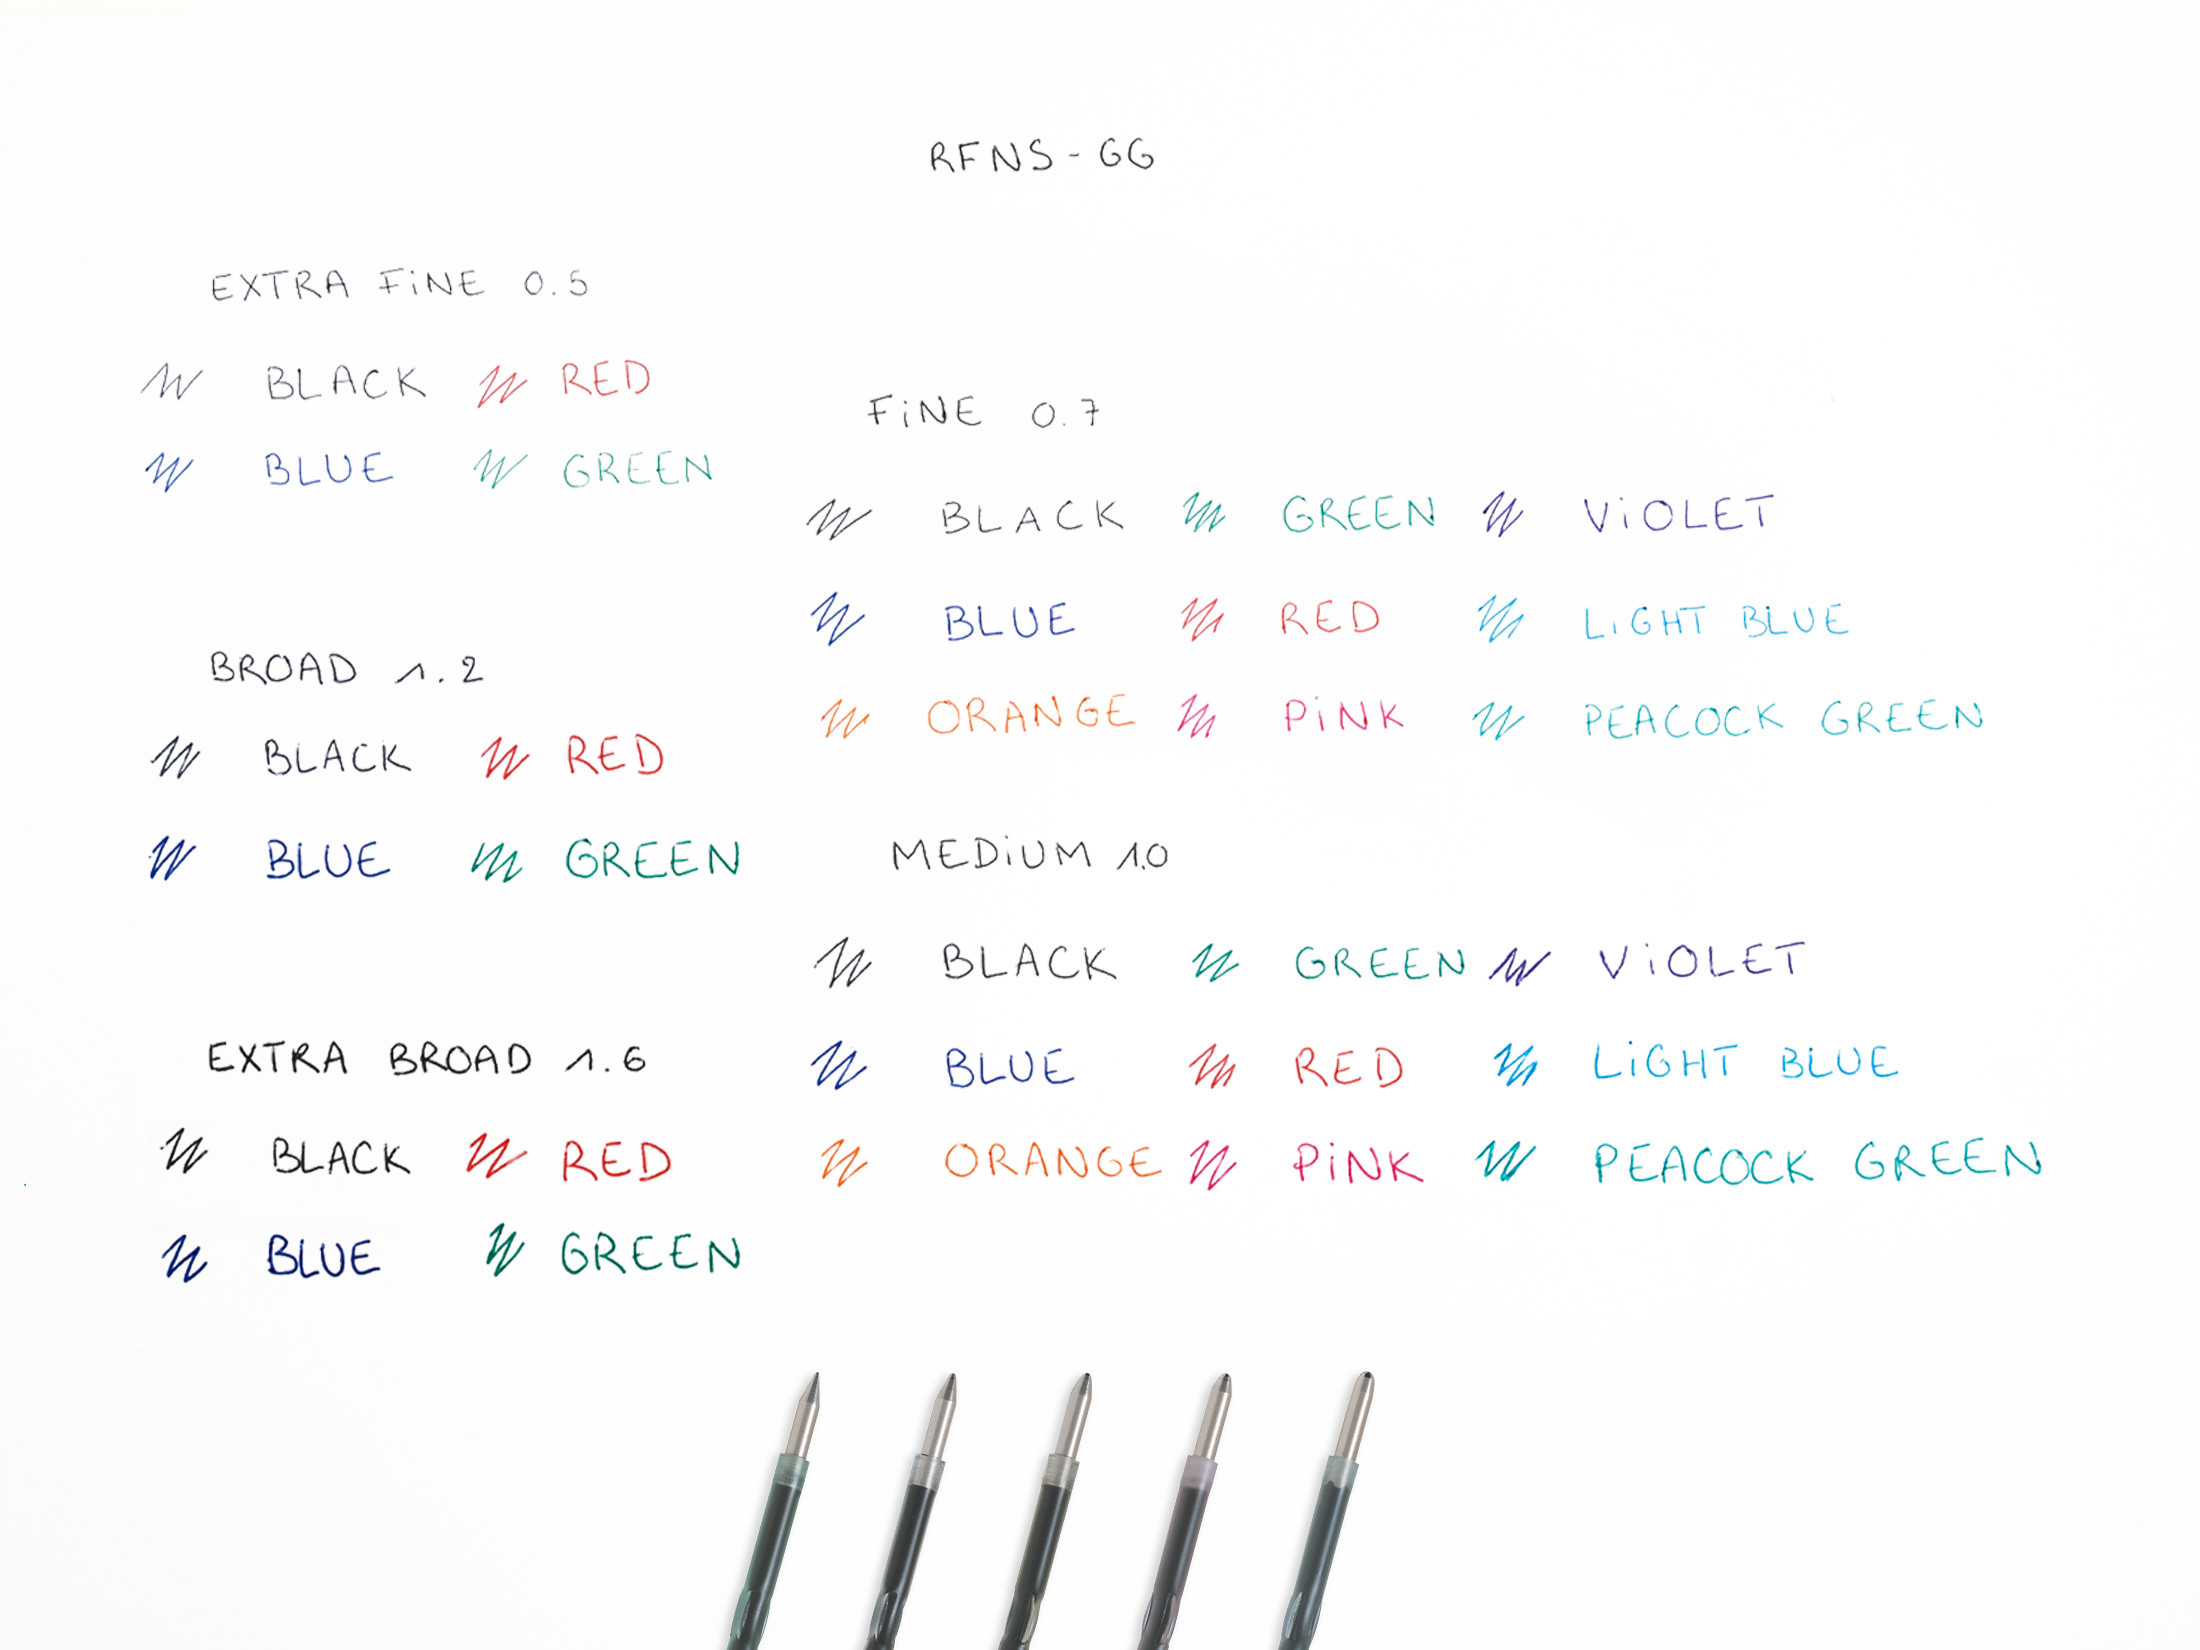 RFNS-GG
EXTRA FiNE 0.5
BLACK RED
BLUE GREEN
BROAD 1.2
BLACK RED
BLUE GREEN
EXTRA BROAD 1.6
BLACK RED
BLUE GREEN
FiNE 0.7
BLACK GREEN ViOLET
BLUE RED LiGHT BLUE
ORANGE PiNK PEACOCK GREEN
MEDiUM 1.0
BLACK GREEN ViOLET
BLUE RED LiGHT BLUE
ORANGE PiNK PEACOCK GREEN